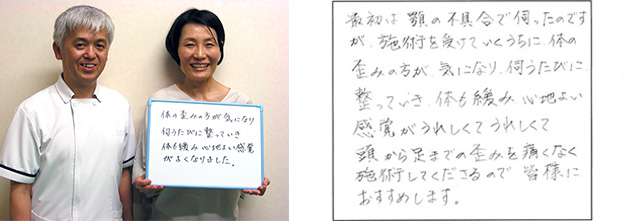 体の歪みの方が気になり
伺うたびに整っていき
体が緩み心地よい感覚
がよくなりました。
最初は顎の不具合で伺ったのです
が、施術を受けていくうちに、体の
歪みの方が、気になり、伺うたびに
整っていき、体も緩み、心地よい
感覚がうれしくてうれしくて
頭から足までの歪みを痛くなく
施術してくださるので皆様に
おすすめします。